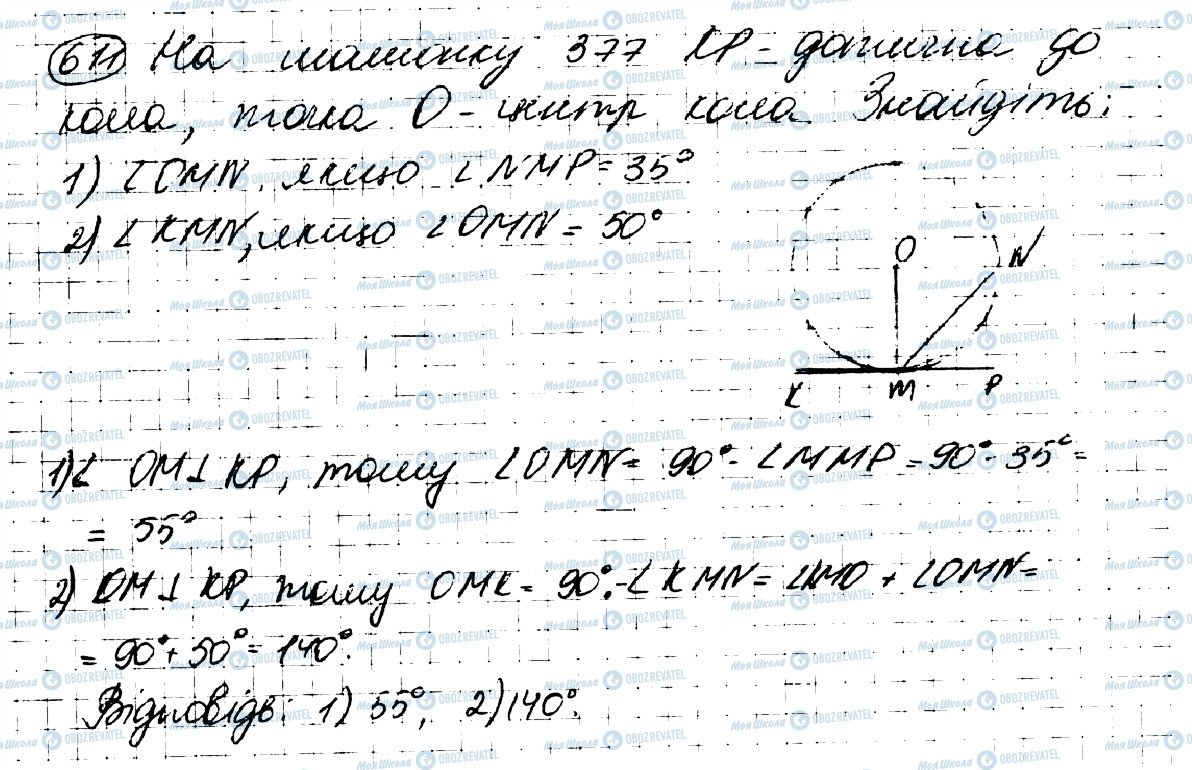 611 На малюнку 377 КР - дотична до
кола, точка О - центр кола. Знайдіть:
1) ∠OMN, якщо ∠NMP = 35°
2) ∠KMN, якщо ∠OMN = 50°
O
N
K M P
1) ∠ OM⊥KP, тому ∠OMN = 90° - ∠MMP = 90° - 35° =
= 55°
2) OM⊥KP, тому OMK = 90°. ∠KMN = ∠KMO + ∠OMN =
= 90° + 50° = 140°.
Відповідь: 1) 55°, 2) 140°.